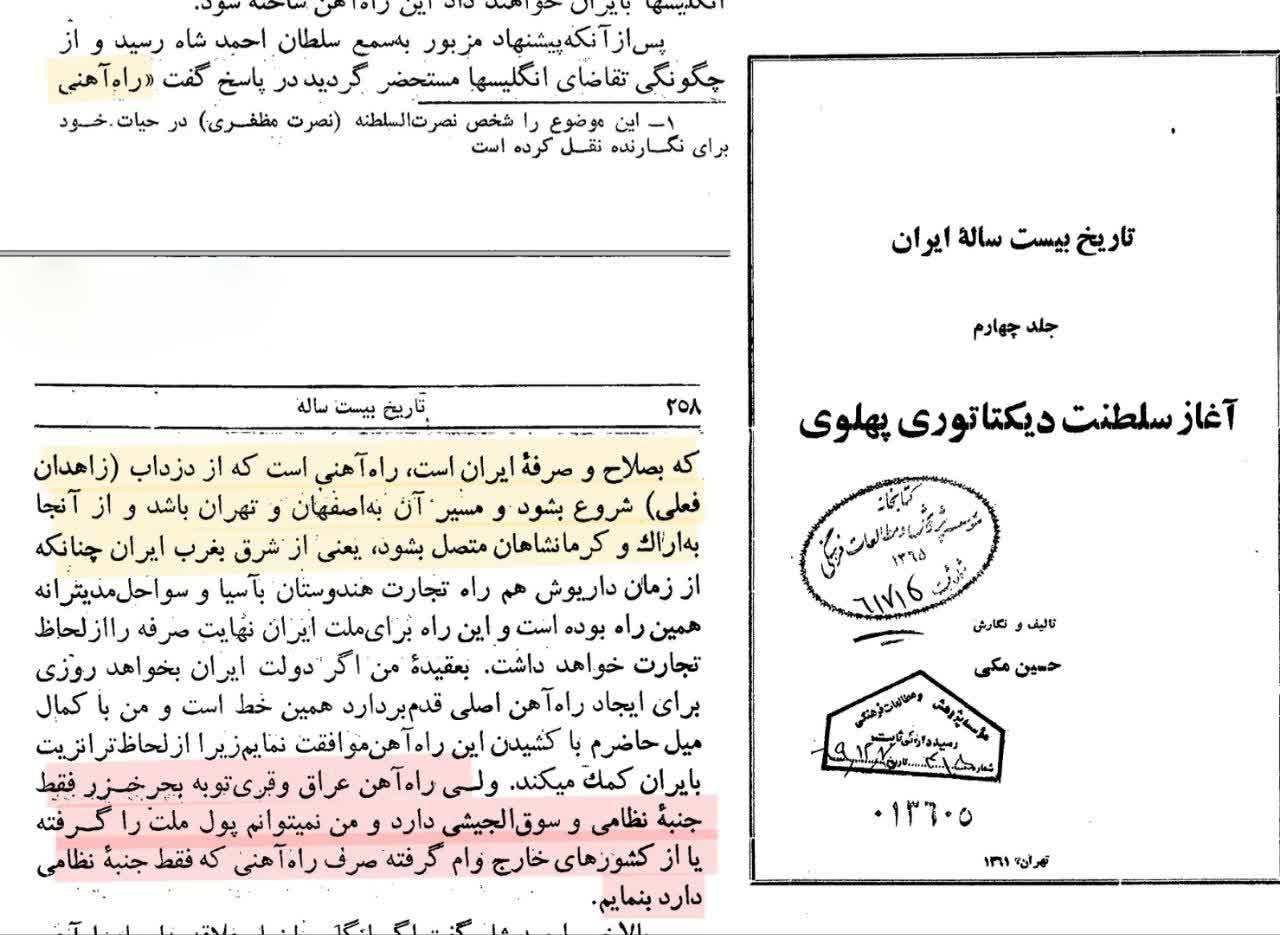 پس‌از آنکه پیشنهاد مزبور به‌سمع سلطان احمد شاه رسید و از
چگونگی تقاضای انگلیسها مستحضر گردید در پاسخ گفت «راه‌آهنی
۱ــ این موضوع را شخص نصرت‌السلطنه (نصرت مظفری) در حیات خود
برای نگارنده نقل کرده است
۲۵۸
تاریخ بیست ساله
که بصلاح و صرفهٔ ایران است، راه‌آهنی است که از دزداب (زاهدان
فعلی) شروع بشود و مسیر آن به‌اصفهان و تهران باشد و از آنجا
به‌اراك و کرمانشاهان متصل بشود، یعنی از شرق بغرب ایران چنانکه
از زمان داریوش هم راه تجارت هندوستان بآسیا و سواحل‌مدیترانه
همین راه بوده است و این راه برای‌ملت ایران نهایت صرفه را از لحاظ
تجارت خواهد داشت. بعقیدهٔ من اگر دولت ایران بخواهد روزی
برای ایجاد راه‌آهن اصلی قدم‌بردارد همین خط است و من با کمال
میل حاضرم با کشیدن این راه‌آهن‌موافقت نمایم‌زیرا از لحاظ ترانزیت
بایران کمك میکند. ولی راه‌آهن عراق وقری‌تو به بحر‌خزر فقط
جنبهٔ نظامی و سوق‌الجیشی دارد و من نمیتوانم پول ملت را گرفته
یا از کشورهای خارج وام گرفته صرف راه‌آهنی که فقط جنبهٔ نظامی
دارد بنمایم.
تاریخ بیست سالهٔ ایران
جلد چهارم
آغاز سلطنت دیکتاتوری پهلوی
کتابخانه
مؤسسه پژوهش و مطالعات فرهنگی
۱۳۶۵
۶۱۷۱۶
تالیف و نگارش
حسین مکی
مؤسسه پژوهش و مطالعات فرهنگی
شماره
تاریخ
۰۱۳۶۰۵
تهران ۱۳۶۱